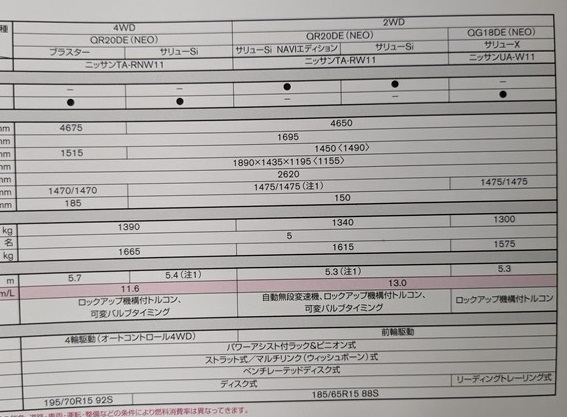 種 4WD 2WD
QR20DE（NEO） QR20DE（NEO） QG18DE（NEO）
ブラスター サリューSi サリューSi NAVIエディション サリューSi サリューX
ニッサンTA-RNW11 ニッサンTA-RW11 ニッサンUA-W11
－ － ● ● －
● ● － － ●
mm 4675 4650
mm 1695
mm 1515 1450〈1490〉
mm 1890×1435×1195〈1155〉
mm 2620
mm 1470/1470 1475/1475（注1） 1475/1475
mm 185 150
kg 1390 1340 1300
名 5
kg 1665 1615 1575
m 5.7 5.4（注1） 5.3（注1） 5.3
m/L 11.6 13.0
ロックアップ機構付トルコン、 自動無段変速機、ロックアップ機構付トルコン、 ロックアップ機構付トルコン
可変バルブタイミング 可変バルブタイミング
4輪駆動（オートコントロール4WD） 前輪駆動
パワーアシスト付ラック&ピニオン式
ストラット式／マルチリンク（ウィッシュボーン）式
ベンチレーテッドディスク式
ディスク式 リーディングトレーリング式
195/70R15 92S 185/65R15 88S
道路・車両・運転・整備などの条件により燃料消費率は異なってきます。